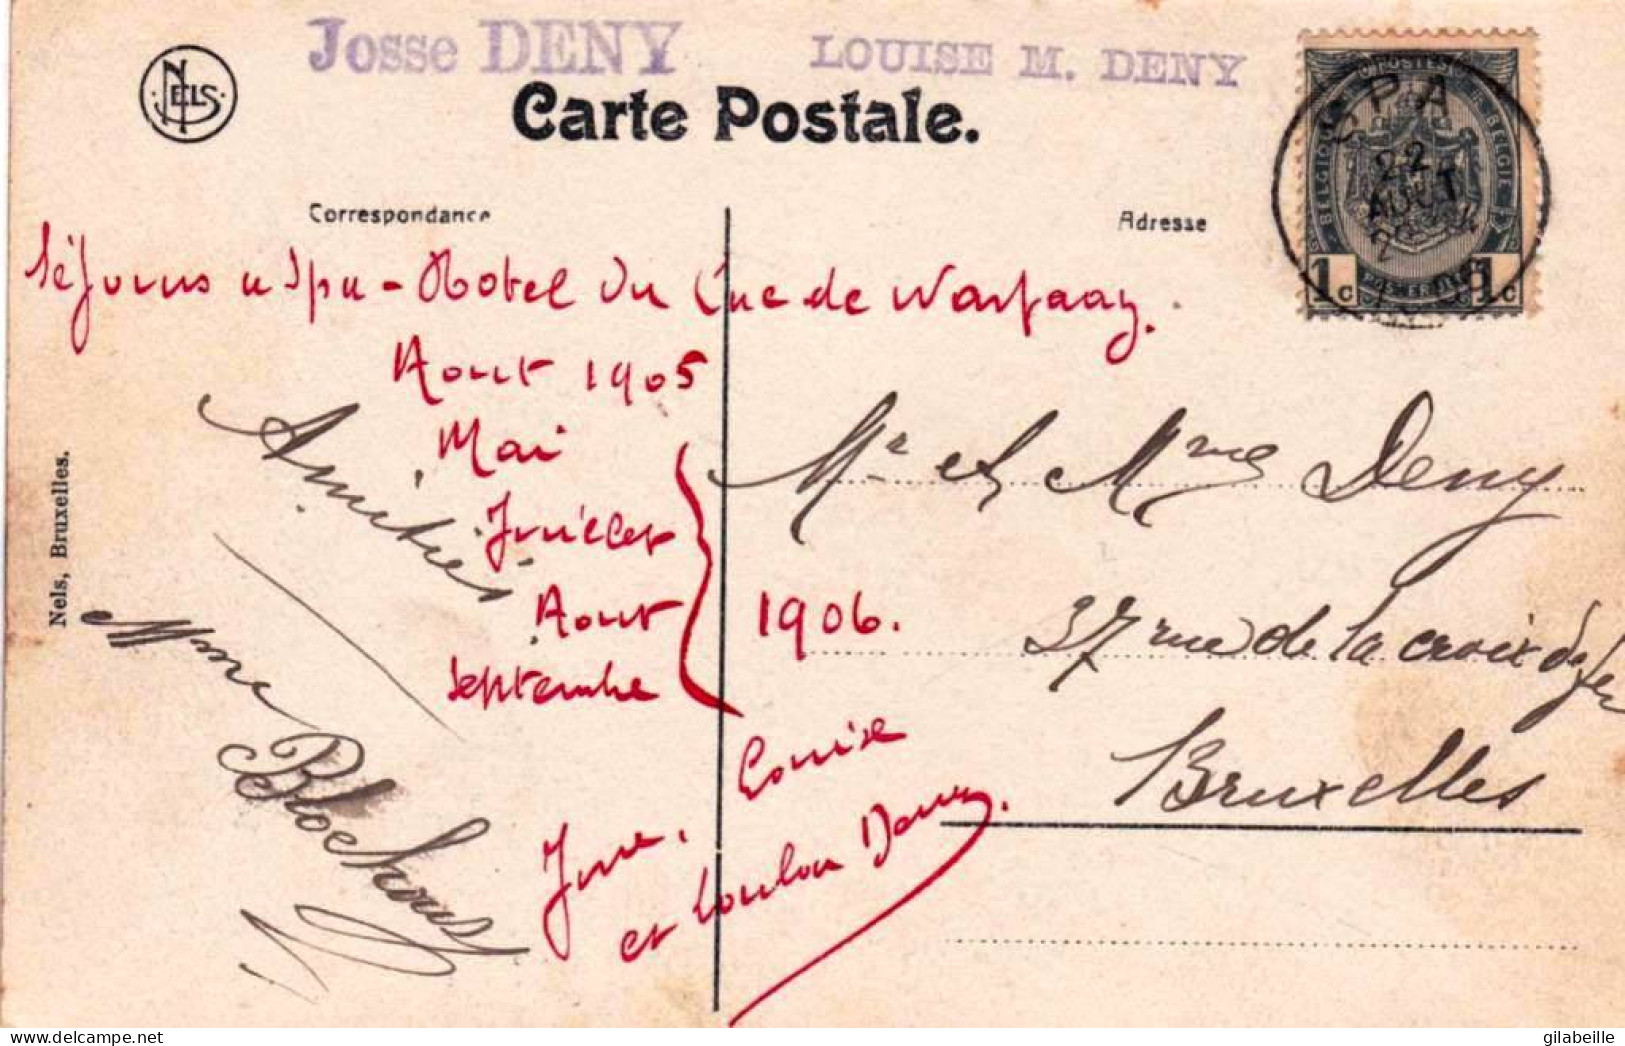 Josse DENY
LOUISE M. DENY
NELS
Carte Postale.
SPA
22
AOUT
POSTES
BELGIQUE
BELGIE
1c 1c
Correspondance
Adresse
Séjours a Spa - Hotel du Lac de Warfaaz.
Aout 1905
Mai
Juillet
Aout
Septembre
1906.
Amitiés
Mme Blockouse
Mr et Mme Deny
37 rue de la croix de fer
Bruxelles
Josse, Louise
et Loulou Deny.
Nels, Bruxelles.
delcampe.net
gilabeille